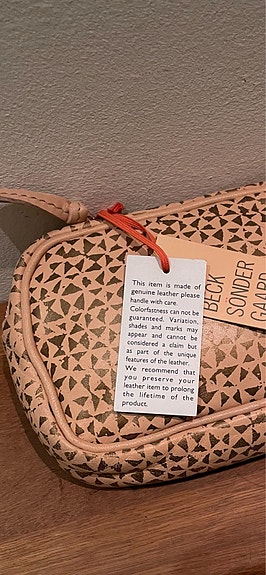 This item is made of
genuine leather please
handle with care.
Colorfastness can not be
guaranteed. Variation,
shades and marks may
appear and cannot be
considered a claim but
as part of the unique
features of the leather.
We recommend that
you preserve your
leather item to prolong
the lifetime of the
product.
BECK
SONDER
GAARD